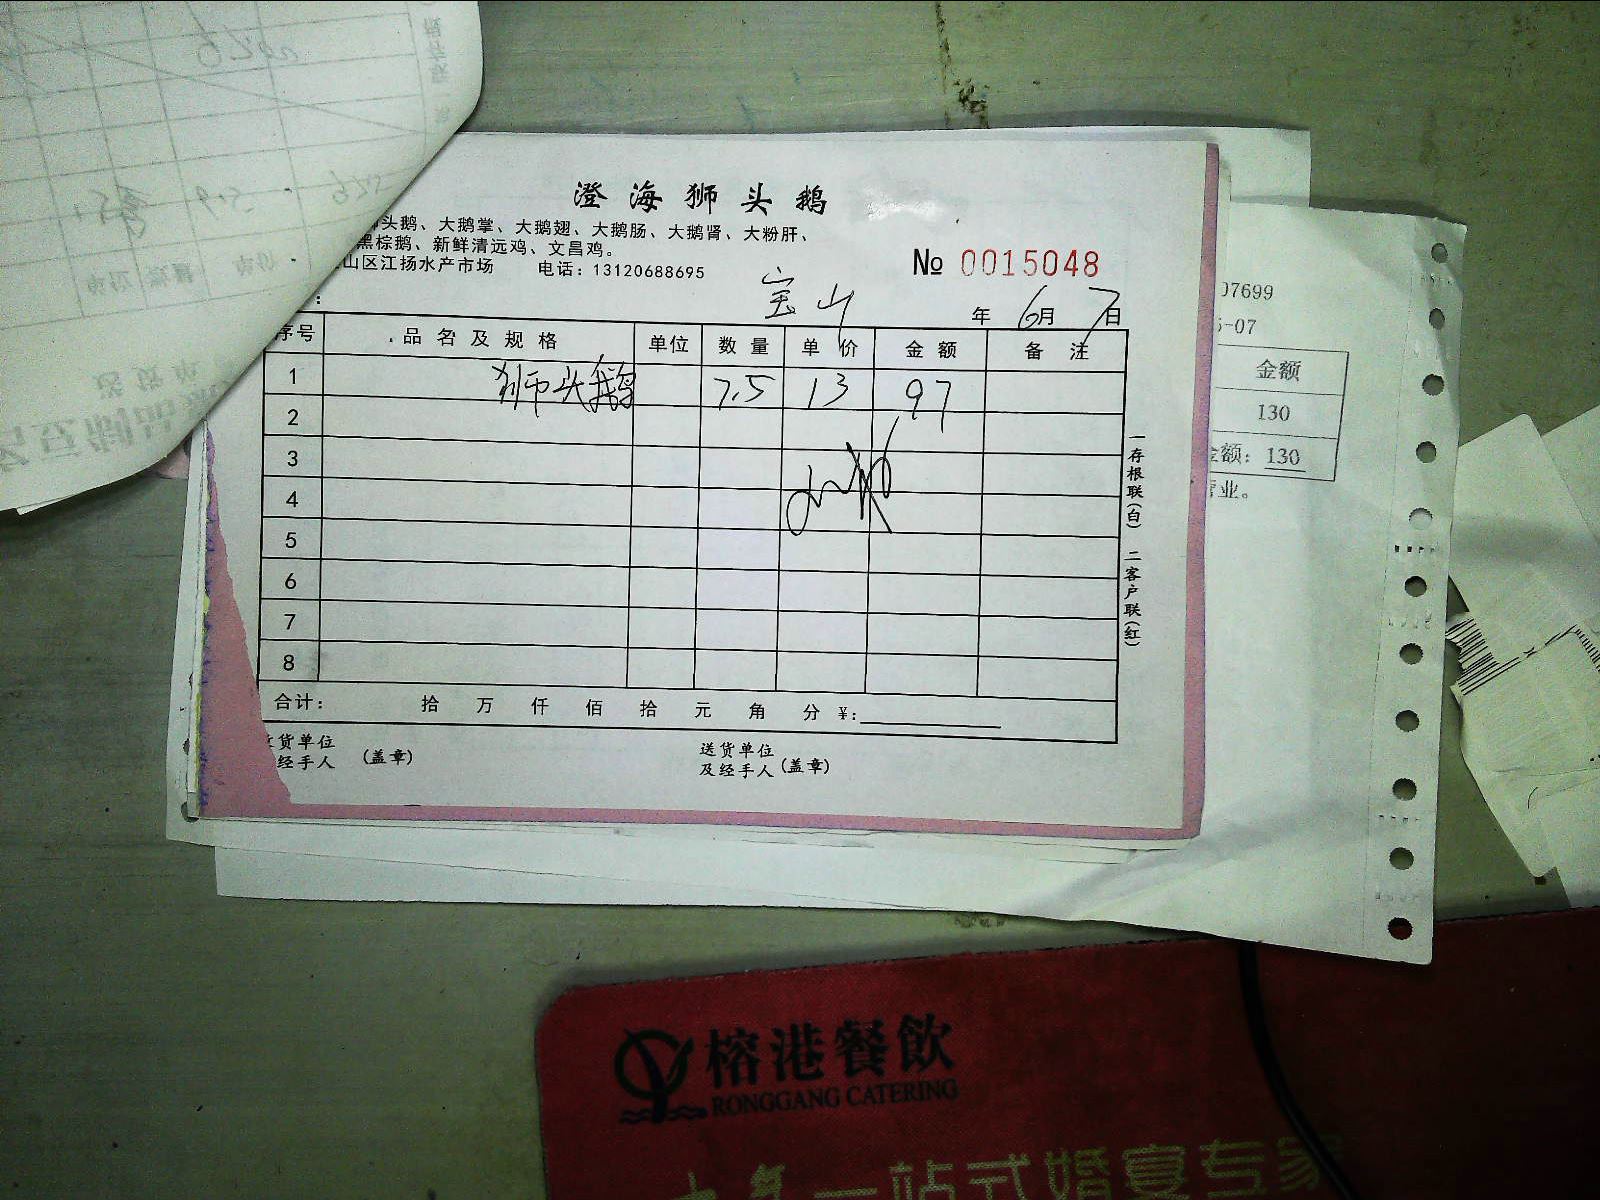 澄海狮头鹅
狮头鹅、大鹅掌、大鹅翅、大鹅肠、大鹅肾、大粉肝、
黑棕鹅、新鲜清远鸡、文昌鸡。
山区江扬水产市场 电话：13120688695
№ 0015048
宝山 年 6月 7日
序号 品名及规格 单位 数量 单价 金额 备注
1 狮头鹅 7.5 13 97
2
3
4
5
6
7
8
合计： 拾 万 仟 佰 拾 元 角 分 ¥:
货单位
经手人 (盖章)
送货单位
及经手人 (盖章)
一存根联(白) 二客户联(红)
07699
-07
金额
130
金额：130
营业。
榕港餐飲
RONGGANG CATERING
一站式婚宴专家